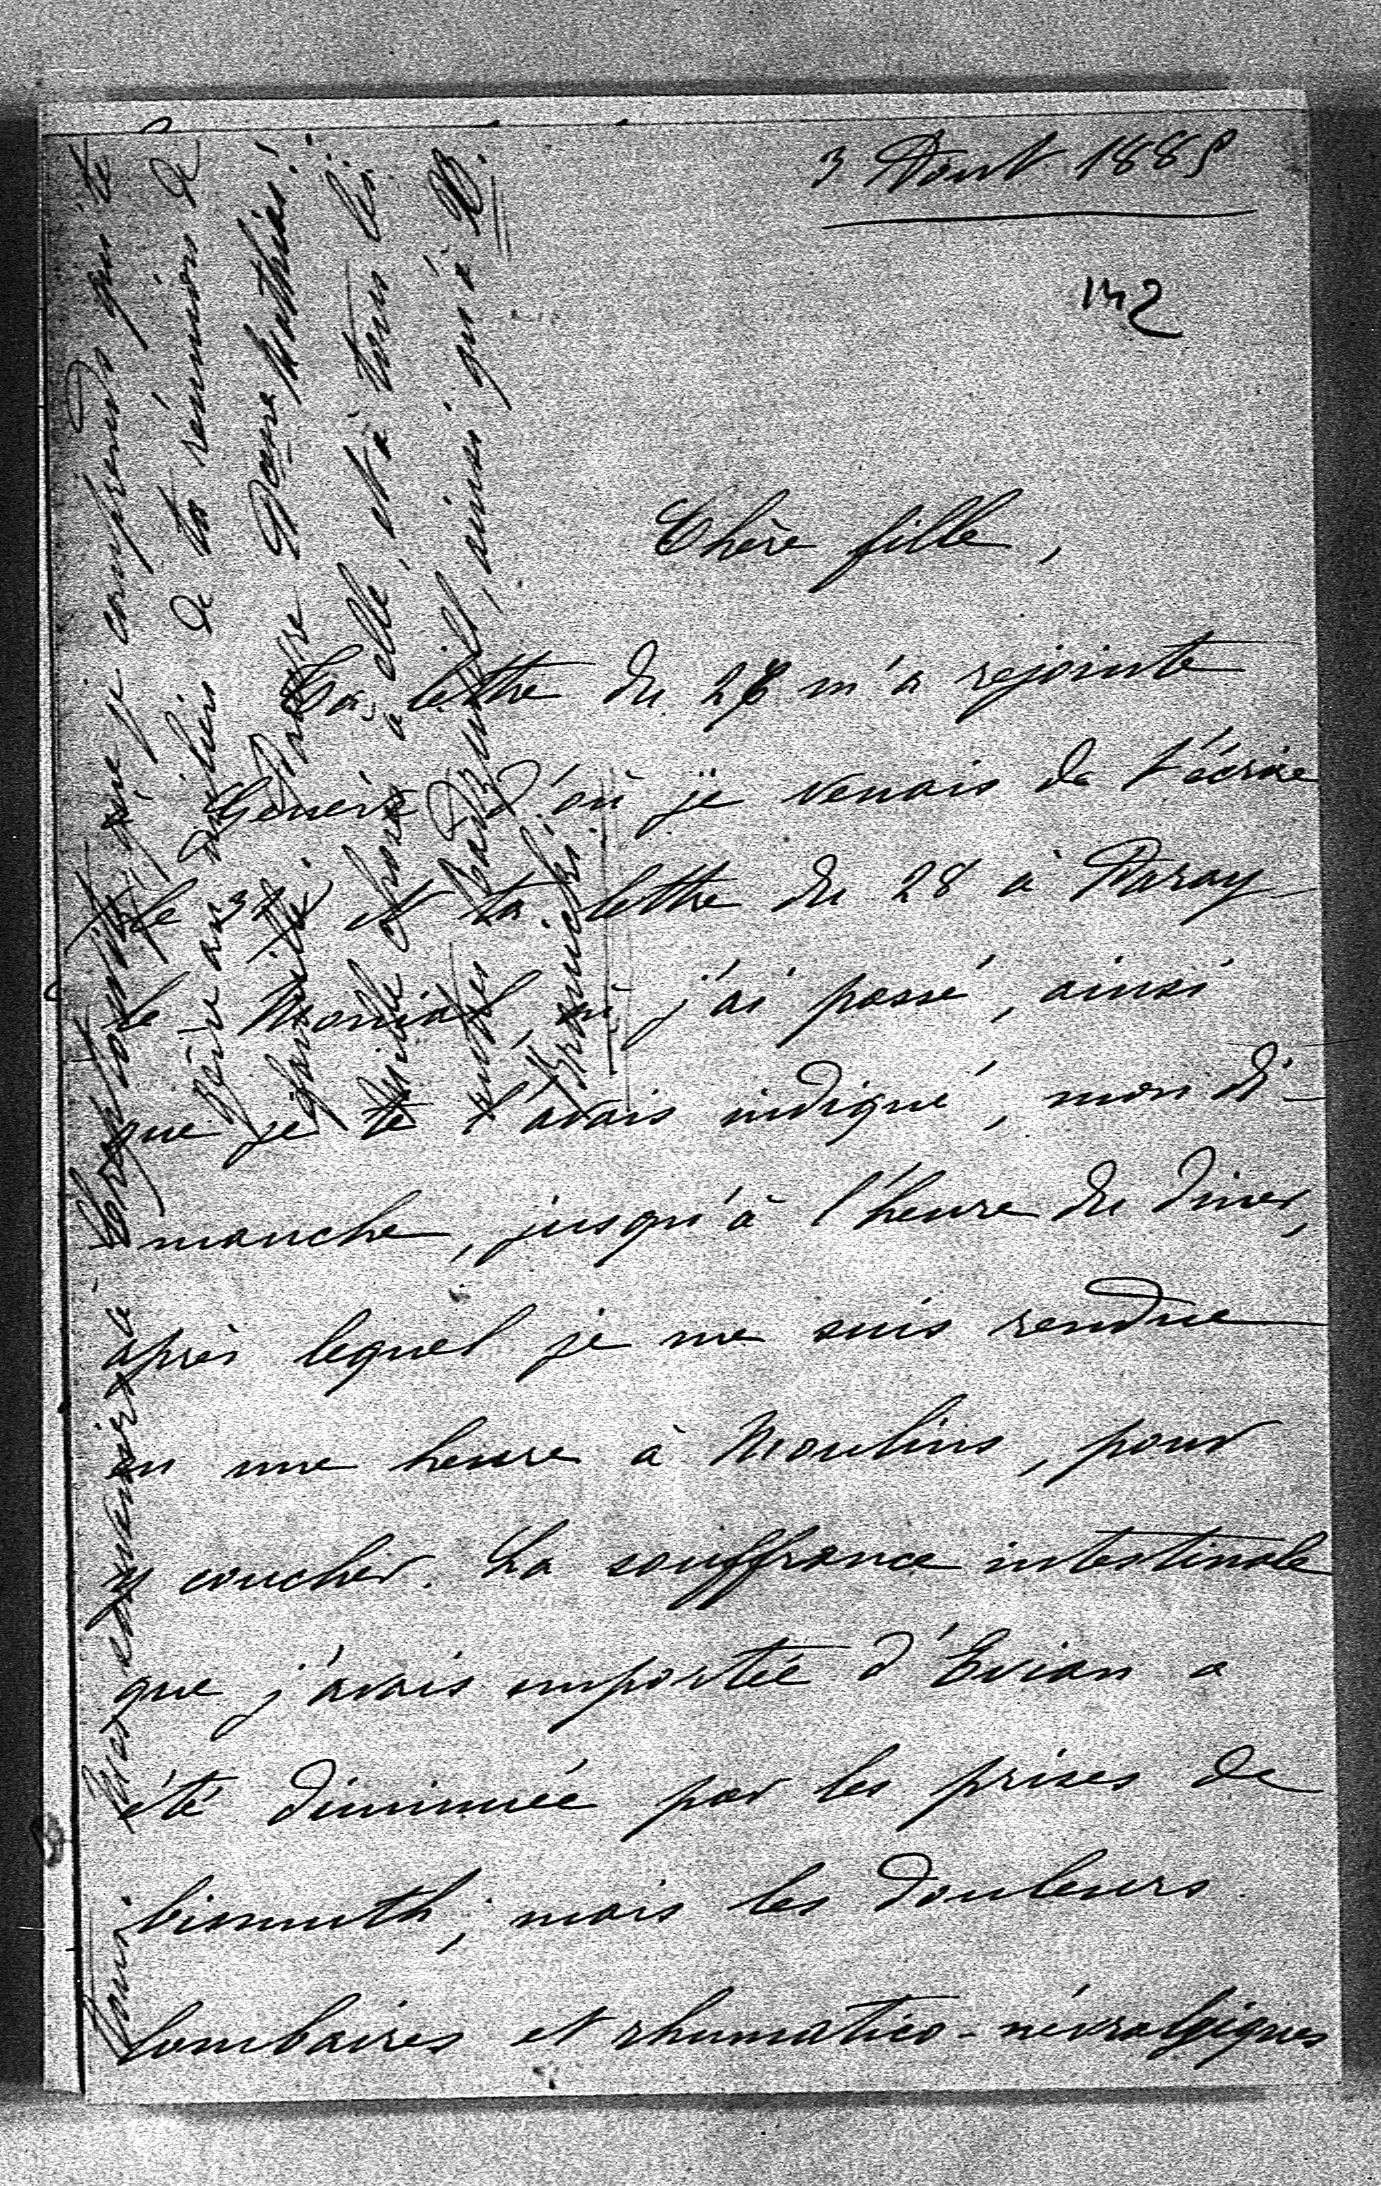 3 Août 1885
142
Chère fille,
Ta lettre du 28 m'a rejointe
Genève d'où je venais de t'écrire
le 31, et ta lettre du 28 à Paray
le Monial, où j'ai passé, ainsi
que je te l'avais indiqué, mon di-
manche, jusqu'à l'heure du diner,
après lequel je me suis rendue
en une heure à Moulins, pour
y coucher. La souffrance intestinale
que j'avais emportée d'Evian a
été diminuée par les prises de
bismuth, mais les douleurs
lombaires et rhumatico-névralgiques
que je comprends qui te
de ta réunion de
famille. Pauvre Mathias!
mille choses à elle, et à tous les
autres ainsi qu'à B.